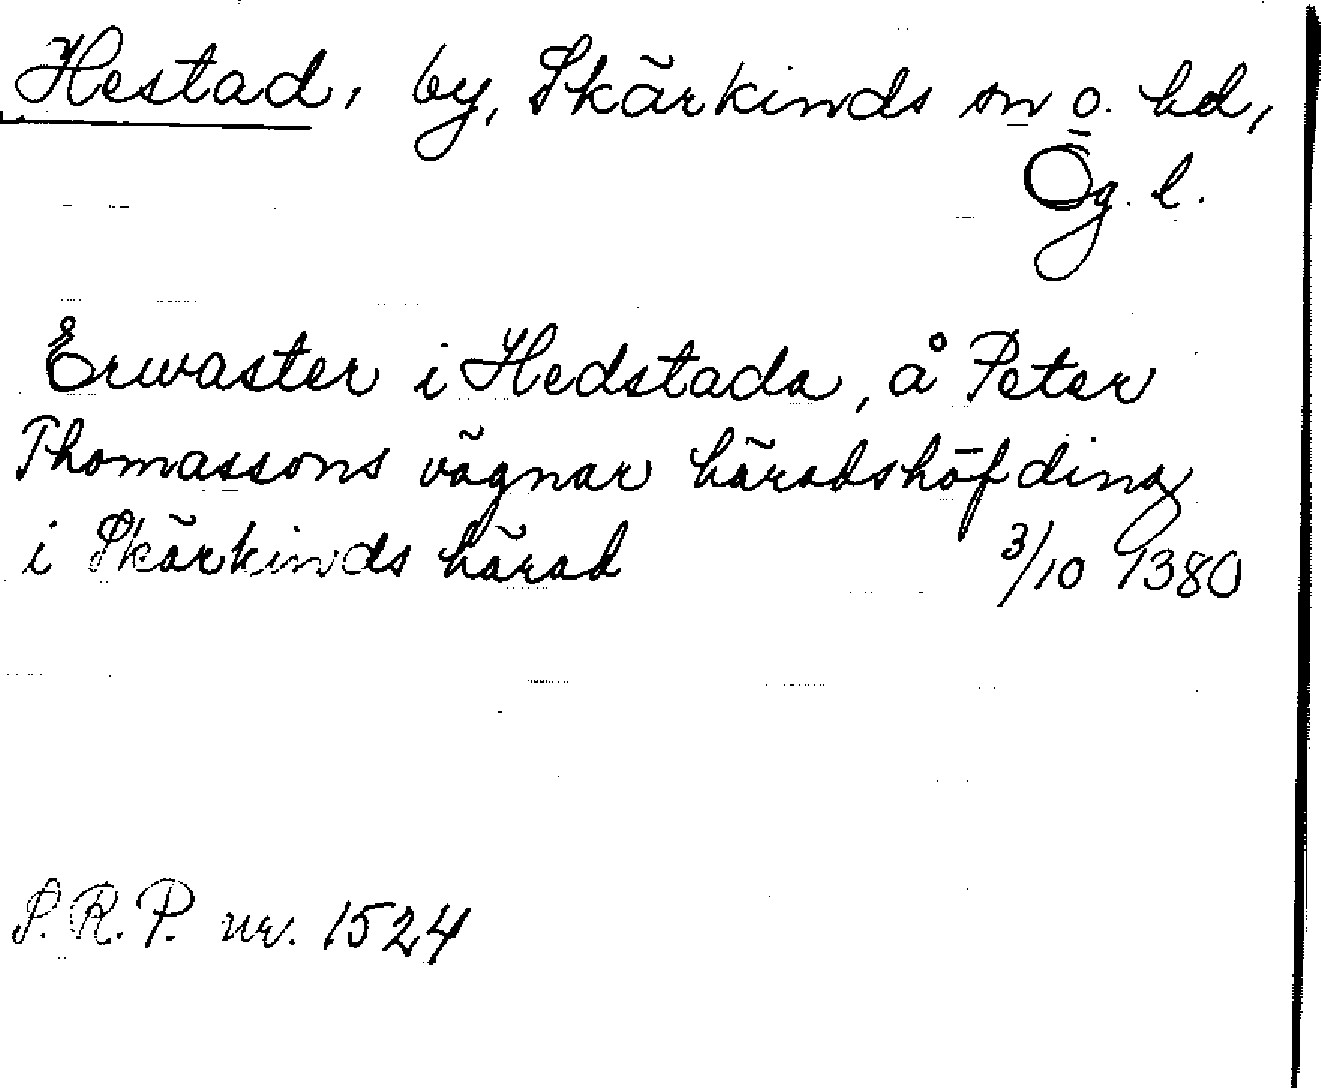 Hestad, by, Skärkinds sn o. hd,
Ög. l.
Erwaster i Hedstada, å Peter
Thomassons vägnar häradshöfding
i Skärkinds härad 3/10 1380
S.R.P. nr. 1524